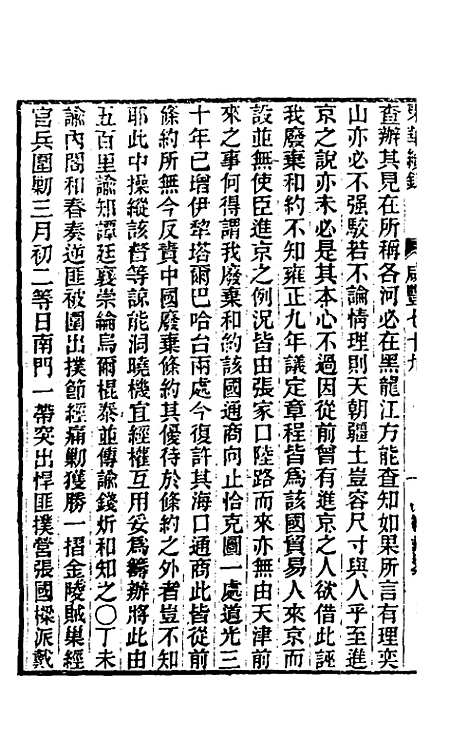 東華續錄　咸豐七十九
查辦其見在所稱各河必在黑龍江方能查知如果所言有理奕
山亦必不强駁若不論情理則天朝疆土豈容尺寸與人乎至進
京之說亦未必是其本心不過因從前曾有進京之人欲借此誣
我廢棄和約不知雍正九年議定章程皆爲該國貿易人來京而
設並無使臣進京之例況皆由張家口陸路而來亦無由天津前
來之事何得謂我廢棄和約該國通商向止恰克圖一處道光三
十年已增伊犂塔爾巴哈台兩處今復許其海口通商此皆從前
條約所無今反責中國廢棄條約其優待於條約之外者豈不知
耶此中操縱該督等諒能洞曉機宜經權互用妥爲籌辦將此由
五百里諭知譚廷襄崇綸烏爾棍泰並傳諭錢炘和知之〇丁未
諭內閣和春奏逆匪被圍出撲節經痛勦獲勝一摺金陵賊巢經
官兵圍勦三月初二等日南門一帶突出悍匪撲營張國樑派戴